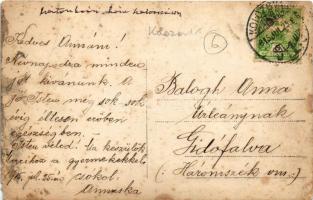 Kedves Annám!
Névnapodra minden
jót kívánunk. A
jó Isten még sok sok
évig éltessen erőben
egészségben.
Isten veled! Ha készültök
a gyermekekkel
csókol
Annuska
6
Balogh Anna
Úrleánynak
Gidófalva
(Háromszék vm.)